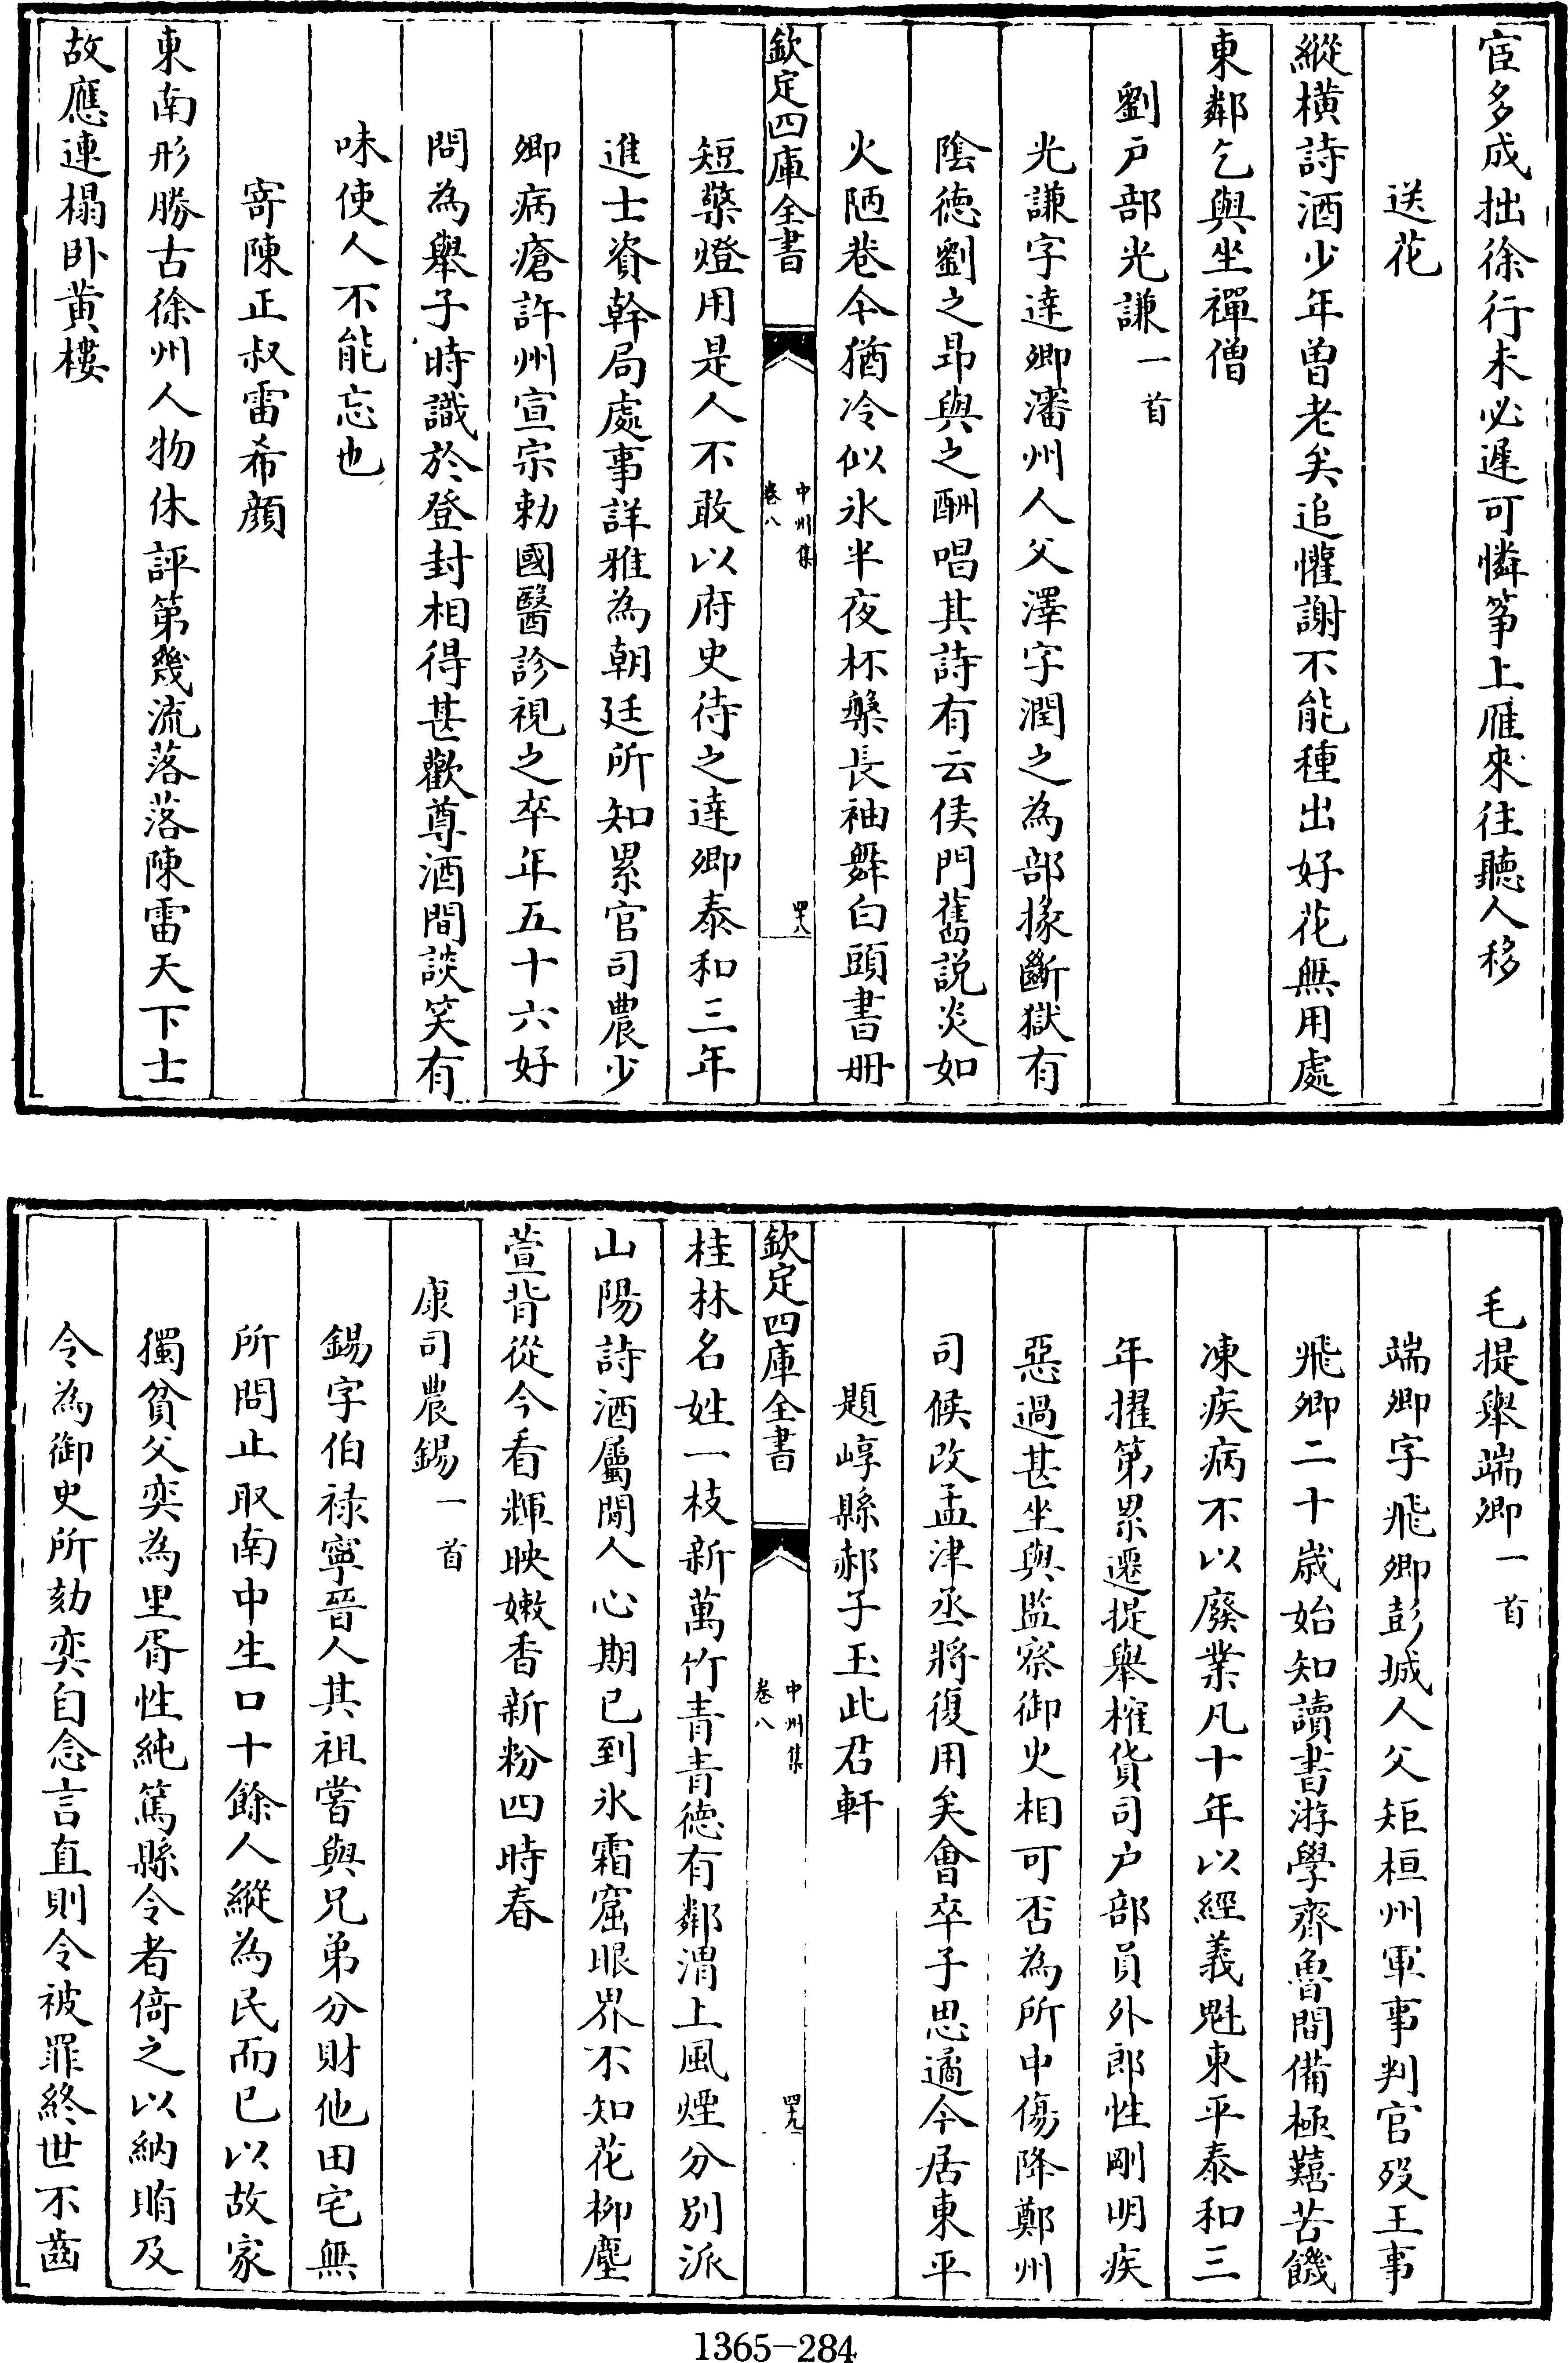 宦多成拙徐行未必遲可憐箏上雁來往聽人移
送花
縱橫詩酒少年曽老矣追懽謝不能種出好花無用處
東鄰乞與坐禪僧
劉户部光謙一首
光謙字達卿瀋州人父澤字潤之為部掾斷獄有
陰徳劉之昻與之酬唱其詩有云侯門舊説炎如
火陋巷今猶冷似氷半夜杯槃長袖舞白頭書册
欽定四庫全書
中州集
卷八
四八
短檠燈用是人不敢以府史待之達卿泰和三年
進士資幹局處事詳雅為朝廷所知累官司農少
卿病瘡許州宣宗勅國醫診視之卒年五十六好
問為舉子時識於登封相得甚歡尊酒間談笑有
味使人不能忘也
寄陳正叔雷希顔
東南形勝古徐州人物休評第幾流落落陳雷天下士
故應連榻卧黄樓
毛提舉端卿一首
端卿字飛卿彭城人父矩桓州軍事判官殁王事
飛卿二十歳始知讀書游學齊魯間備極囏苦饑
凍疾病不以廢業凡十年以經義魁東平泰和三
年擢第累遷提舉榷貨司户部員外郎性剛明疾
惡過甚坐與監察御火相可否為所中傷降鄭州
司候改孟津丞將復用矣會卒子思遹今居東平
題崞縣郝子玉此君軒
欽定四庫全書
中州集
卷八
四九
桂林名姓一枝新萬竹青青徳有鄰渭上風煙分别派
山陽詩酒屬閒人心期已到氷霜窟眼界不知花柳塵
萱背從今看輝映嫩香新粉四時春
康司農錫一首
錫字伯禄寧晉人其祖嘗與兄弟分財他田宅無
所問止取南中生口十餘人縱為民而已以故家
獨貧父奕為里胥性純篤縣令者倚之以納賄及
令為御史所劾奕自念言直則令被罪終世不齒
1365-284